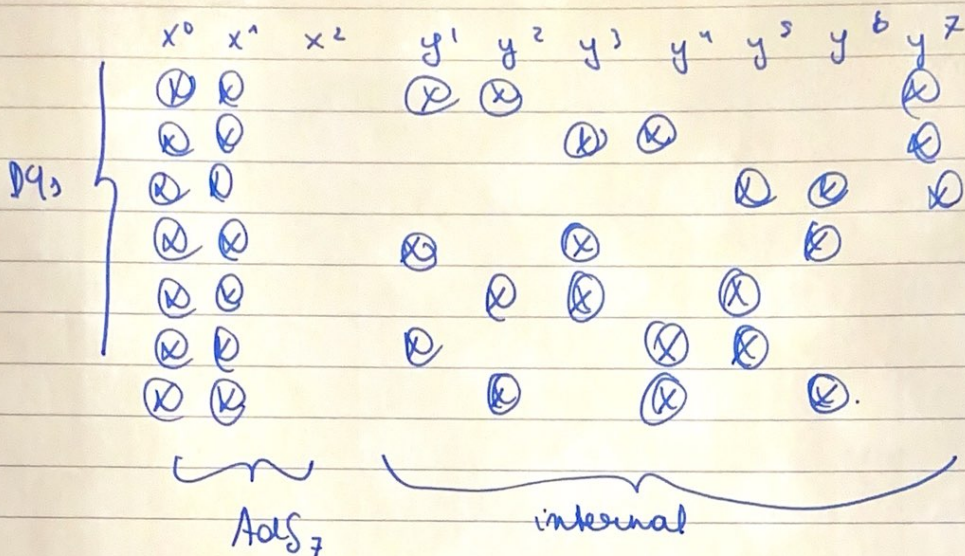 x⁰ x¹ x² y¹ y² y³ y⁴ y⁵ y⁶ y⁷
⊗ ⊗ ⊗ ⊗ ⊗
⊗ ⊗ ⊗ ⊗ ⊗
⊗ ⊗ ⊗ ⊗ ⊗
⊗ ⊗ ⊗ ⊗ ⊗
⊗ ⊗ ⊗ ⊗ ⊗
⊗ ⊗ ⊗ ⊗ ⊗
⊗ ⊗ ⊗ ⊗ ⊗.
AdS₇ internal